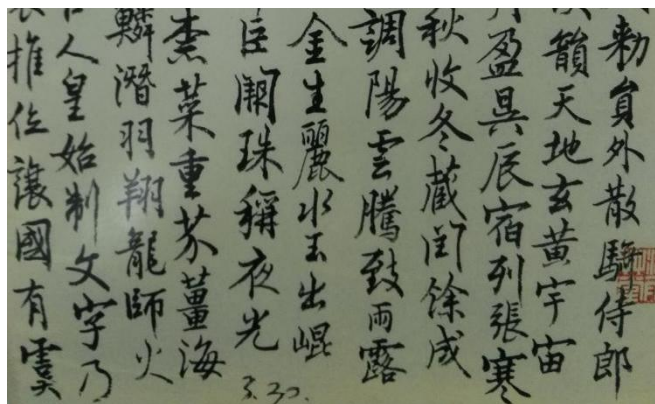 勑員外散騎侍郎
韻天地玄黃宇宙
盈昃辰宿列張寒
秋收冬藏閏餘成
調陽雲騰致雨露
金生麗水玉出崐
巨闕珠稱夜光
柰菜重芥薑海
鱗潛羽翔龍師火
人皇始制文字乃
推位讓國有虞
3.30.